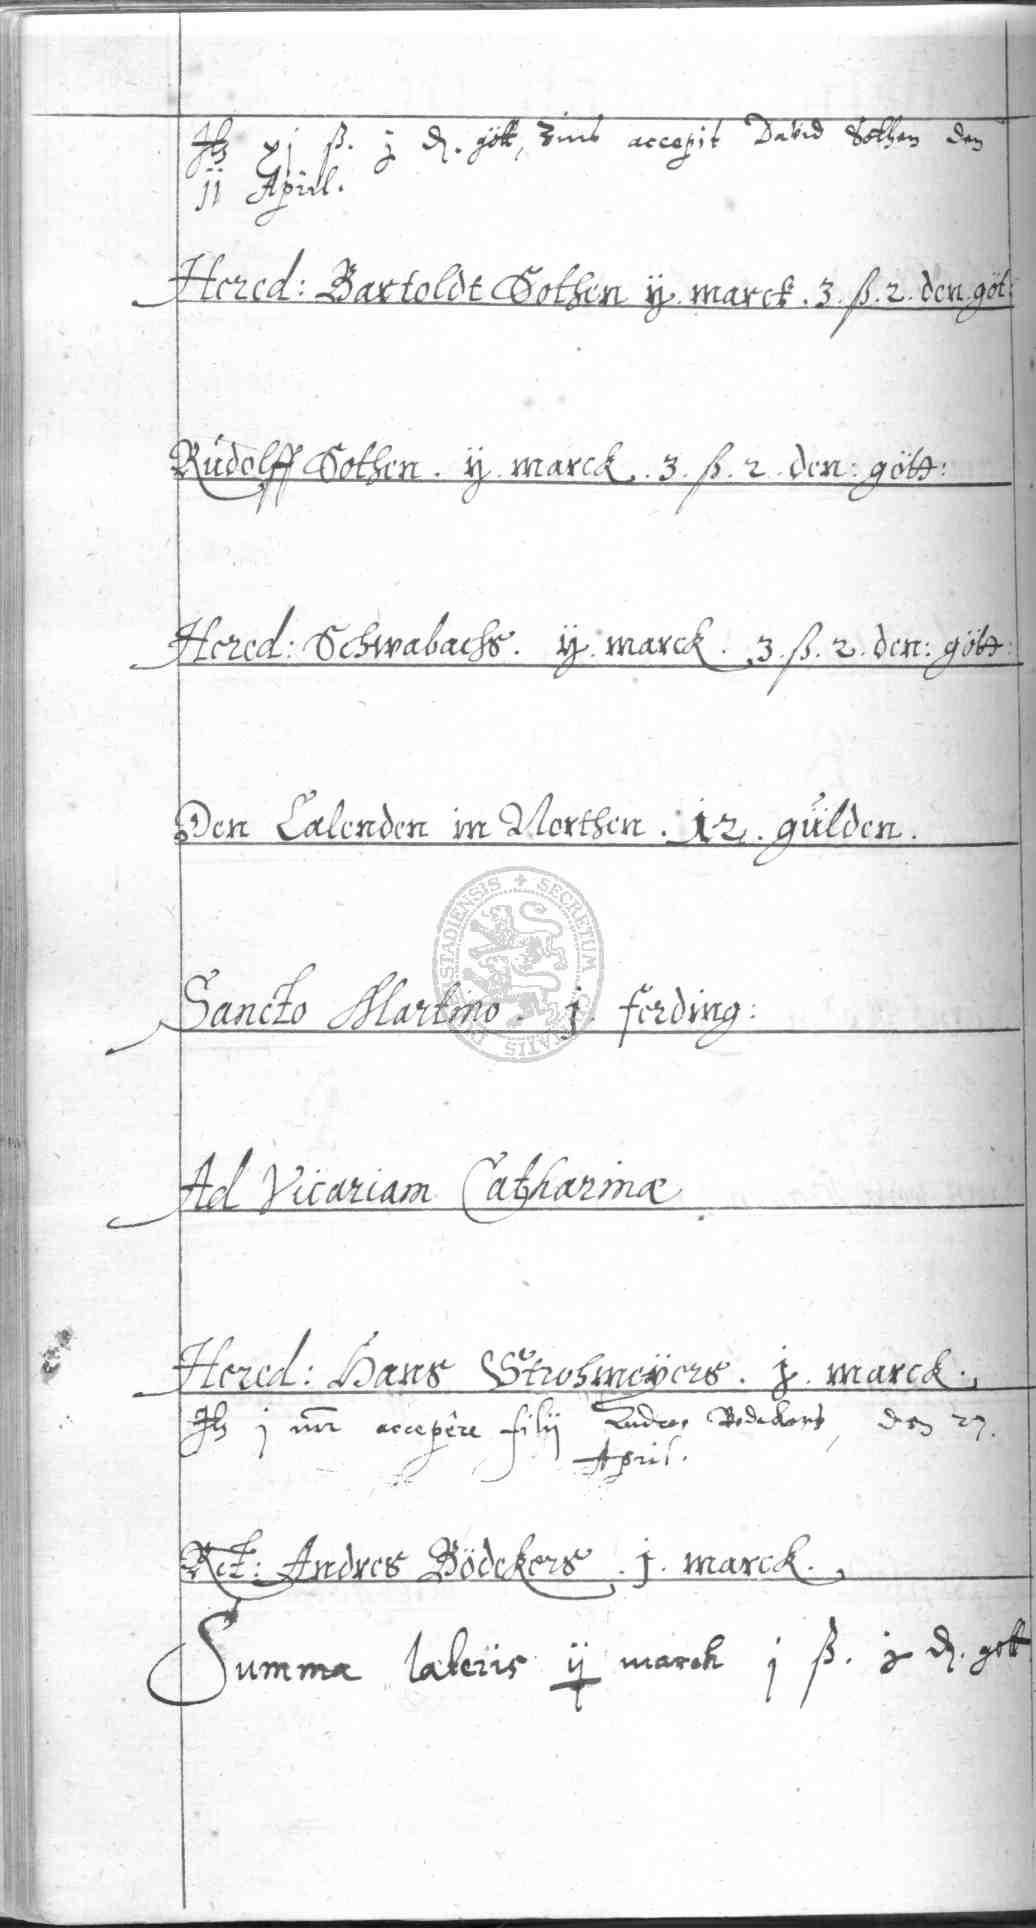 xj ß. j d. gött, Zins accepit David Sothen den
11 April.
Hered: Bartoldt Sothen ij. marck. 3. ß. 2. den. göt:
Rudolff Sothen. ij. marck. 3. ß. 2. den: gött:
Hered: Schwabachs. ij. marck. 3. ß. 2. den: gött:
Den Calenden in Northen. 12. gülden.
Sancto Martino. j. ferding:
Ad Vicariam Catharinæ
Hered: Hans Strohmeÿers. j. marck.
j mr accepêre filij Andres Bödekers, den 27.
April.
Rct: Andres Bödekers. j. marck.
Summa lateris ij marck j ß. j d. gott
SECRETUM